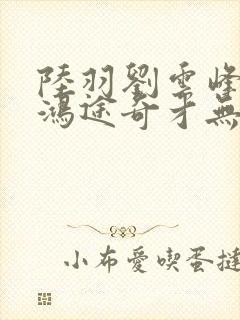 陸羽劉雲峰
鴻途奇才無
小布愛喫蛋撻